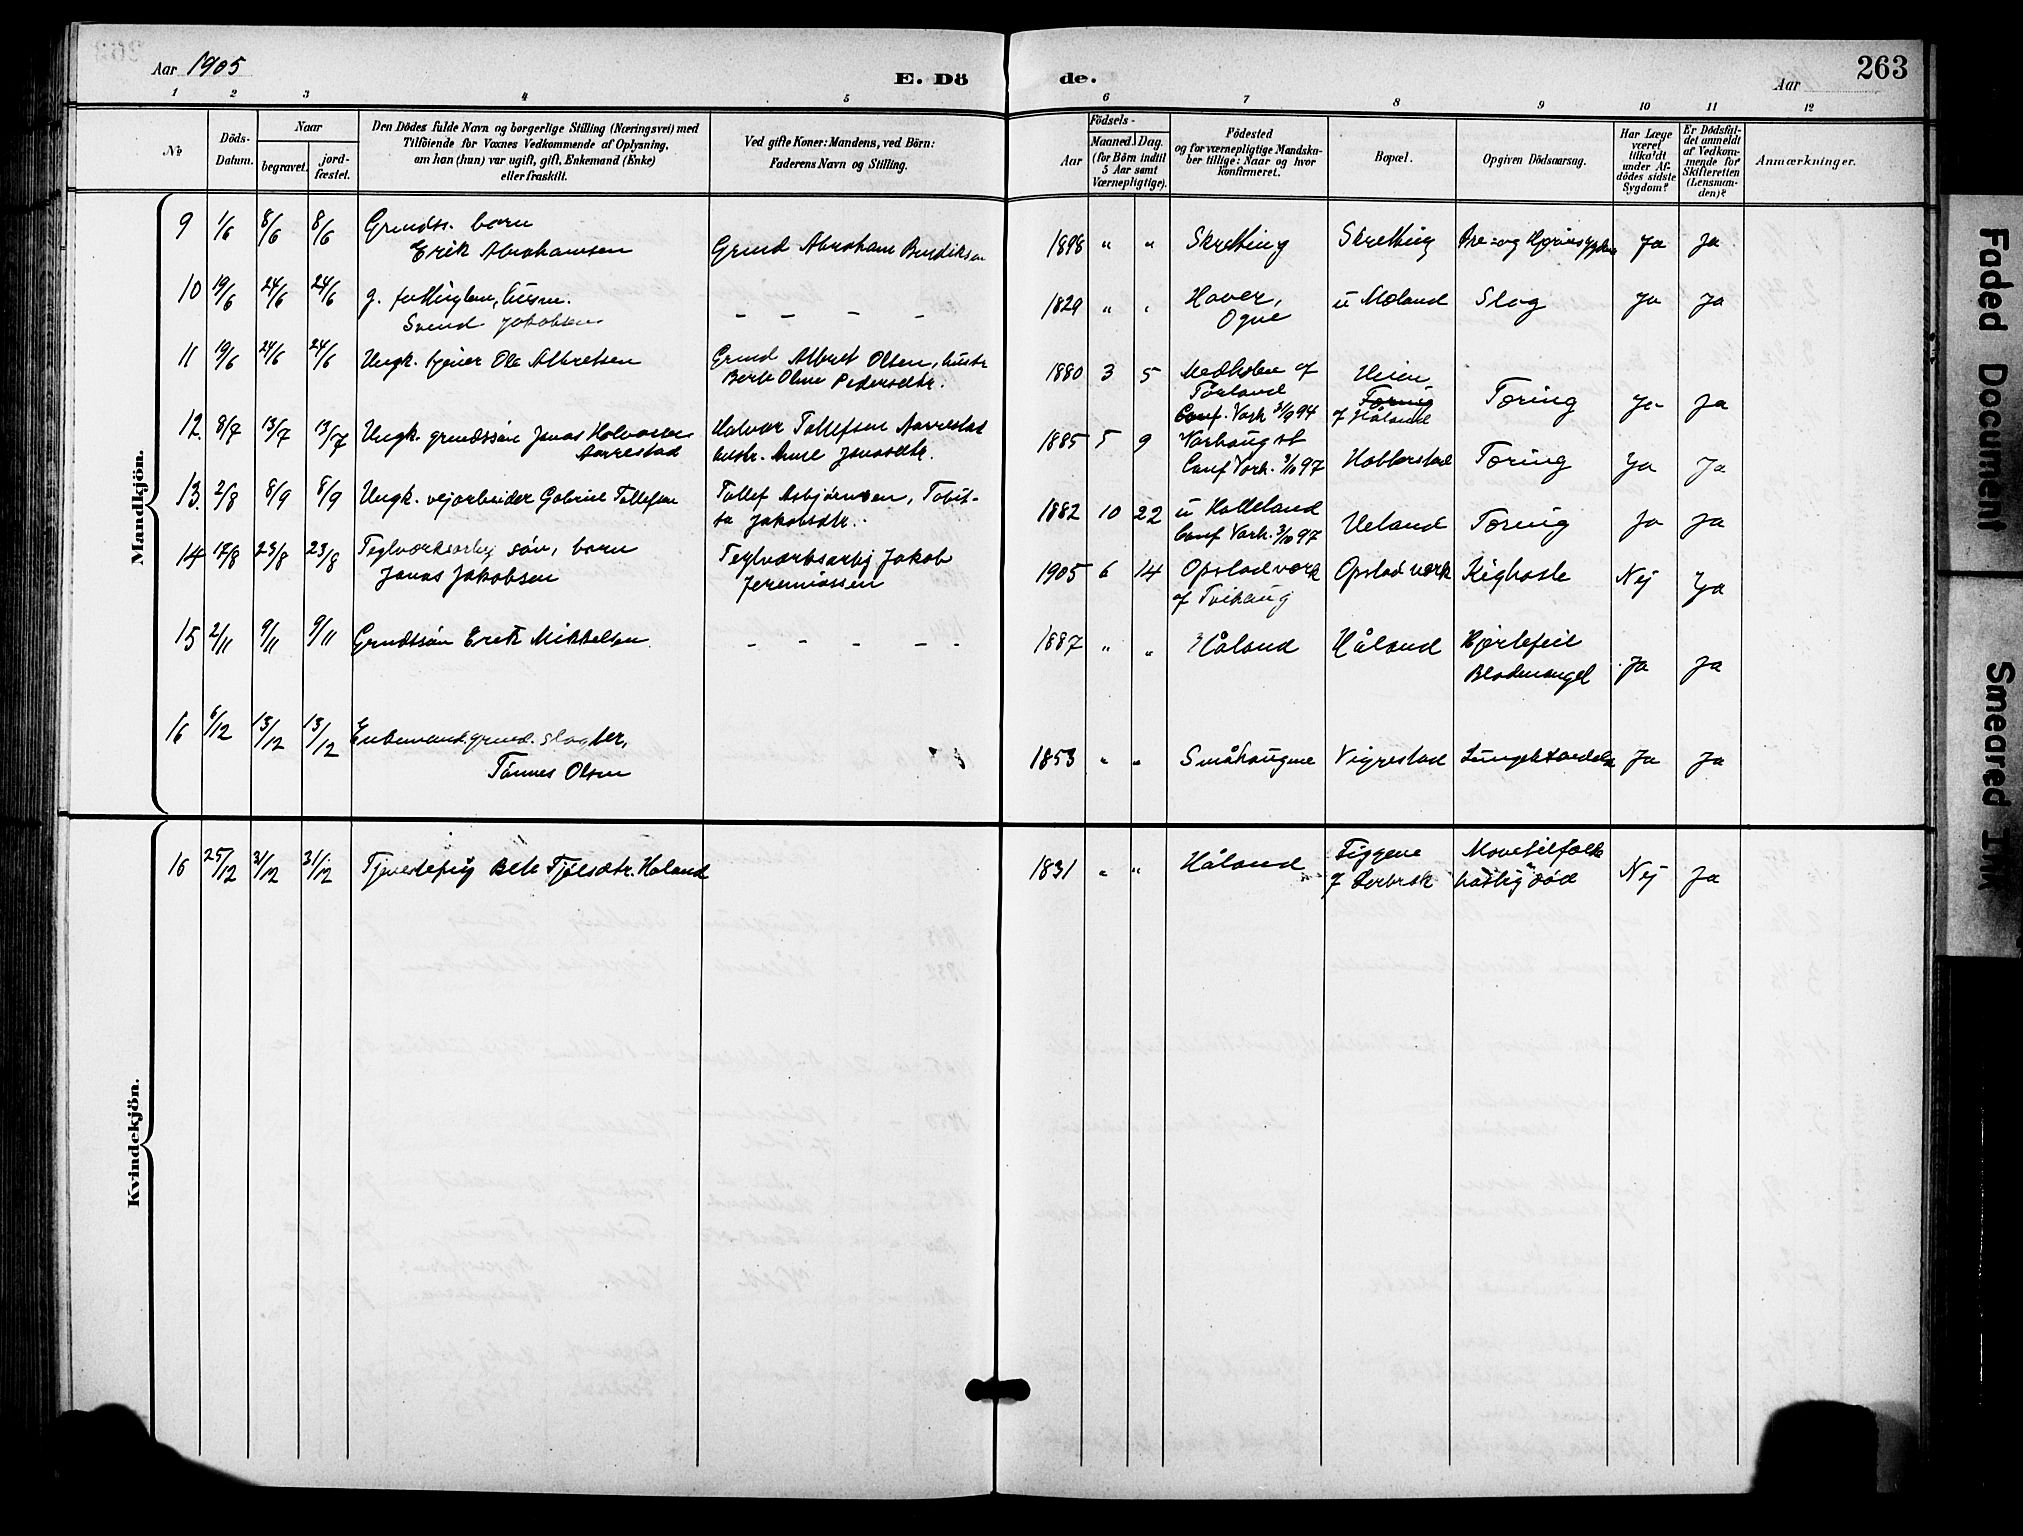 Aar 1905
E. Dö
de.
Aar
263
1 2 3 4 5 6 7 8 9 10 11 12
No
Döds-
Datum.
Naar
begravet.
jord-
fæstet.
Den Dödes fulde Navn og borgerlige Stilling (Næringsvei) med
Tilföiende for Voxnes Vedkommende af Oplysning,
om han (hun) var ugift, gift, Enkemand (Enke)
eller fraskilt.
Ved gifte Koner: Mandens, ved Börn:
Faderens Navn og Stilling.
Födsels-
Aar
Maaned. Dag.
(for Börn indtil
5 Aar samt
Værnepligtige).
Födested
og for værnepligtige Mandska-
ber tillige: Naar og hvor
konfirmeret.
Bopæl.
Opgiven Dödsaarsag.
Har Læge
været
tilkaldt
under Af-
dödes sidste
Sygdom?
Er Dödsfal-
det anmeldt
af Vedkom-
mende for
Skifteretten
(Lensman-
den)?
Anmærkninger.
Mandkjön.
9 1/6 8/6 8/6 Grundss. barn
Erik Abrahamsen Grmd Abraham 1898 " " Skretting Skretting Ja Ja
10 19/6 24/6 24/6 g.
Svend Jakobsen – – – – 1829 " " Haver,
Ogne u Moland Slag Ja Ja
11 19/6 24/6 24/6 Ungk. tjener Ole Albretsen Grmd Albret Olsen, hustr
Berte Oline Pedersdtr. 1880 3 5 af
Torland
Conf. Varh. 94
af Håland Tæring Ja Ja
12. 8/7 13/7 13/7 Ungk. grmdssøn Jonas
Aarrestad Halvor Tollefsen Aarrestad
hustr. Anne Jonasdtr. 1885 5 9 Varhaug st
Conf Varh. 3/10 97 Tæring Ja Ja
13. 2/8 8/9 8/9 Ungk. vejarbeider Gabriel Tollefsen Tollef Asbjørnsen, Tobit-
ta Jakobsdtr. 1882 10 22 u Holleland
Conf Varh. 3/10 97 Ueland Tæring Ja Ja
14 17/8 23/8 23/8 Teglværksarbj søn, barn
Jonas Jakobsen Teglværksarbj Jakob
Jeremiassen 1905 6 14 Opstad værk
af Tvihaug Opstad værk Kighoste Nej Ja
15 2/11 9/11 9/11 Grmdssøn Erik Mikkelsen – – – – – 1887 " " Håland Håland Hjertefeil
Blodmangel Ja Ja
16 6/12 13/12 13/12 Enkemand. grmd. slagter,
Tønnes Olsen 1853 " " Småhaugene Vigrestad Ja Ja
Kvindekjön.
16 25/12 31/12 31/12 Håland 1831 " " Håland Tiggene
af Nej Ja
Faded Document
Smeared Ink